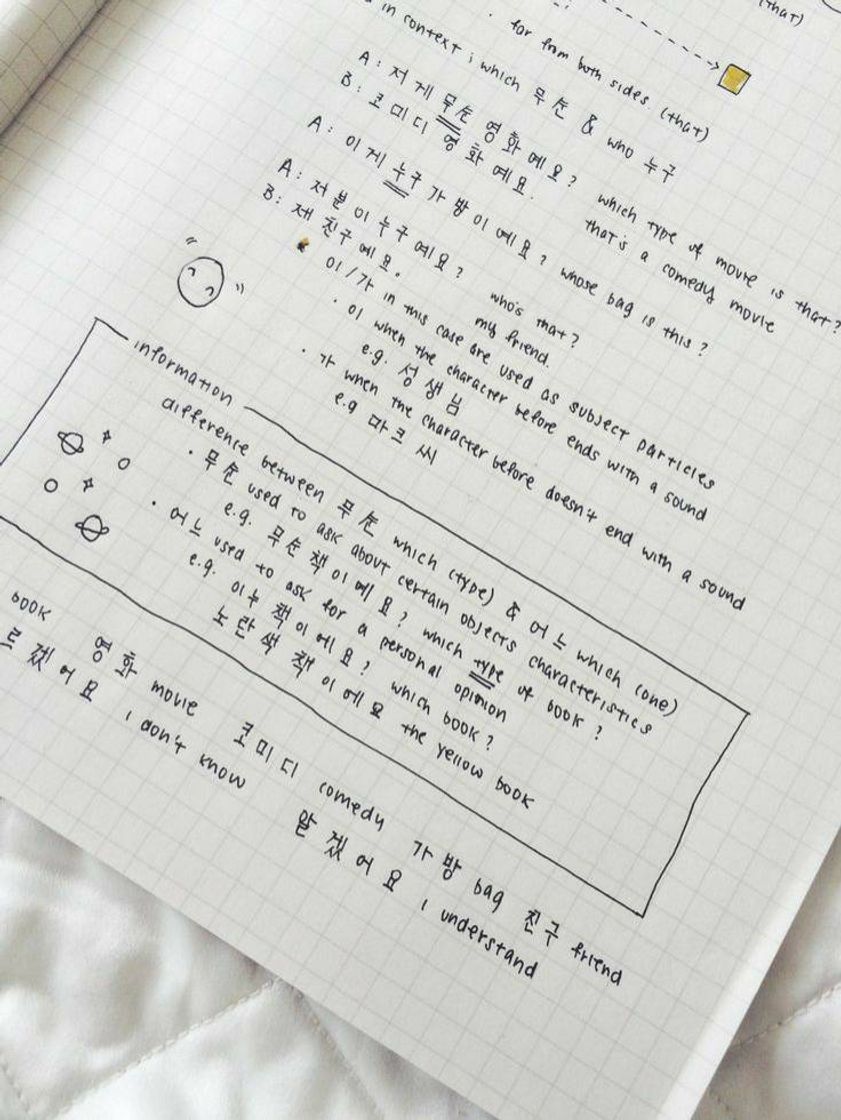 (that)
· far from both sides (that)
in context ; which 무슨 & who 누구
A: 저게 무슨 영화예요? which type of movie is that?
B: 코미디 영화예요. that's a comedy movie
A: 이게 누구 가방이예요? whose bag is this?
A: 저분이 누구예요? who's that?
B: 제 친구예요. my friend.
이/가 in this case are used as subject particles
· 이 when the character before ends with a sound
e.g. 성생님
· 가 when the character before doesn't end with a sound
e.g 마크 씨
information
difference between 무슨 which (type) & 어느 which (one)
· 무슨 used to ask about certain objects characteristics
e.g. 무슨 책이예요? which type of book?
· 어느 used to ask for a personal opinion
e.g. 어느 책이에요? which book?
노란색 책이에요 the yellow book
book 영화 movie 코미디 comedy 가방 bag 친구 friend
르겠어요 i don't know 알겠어요 i understand